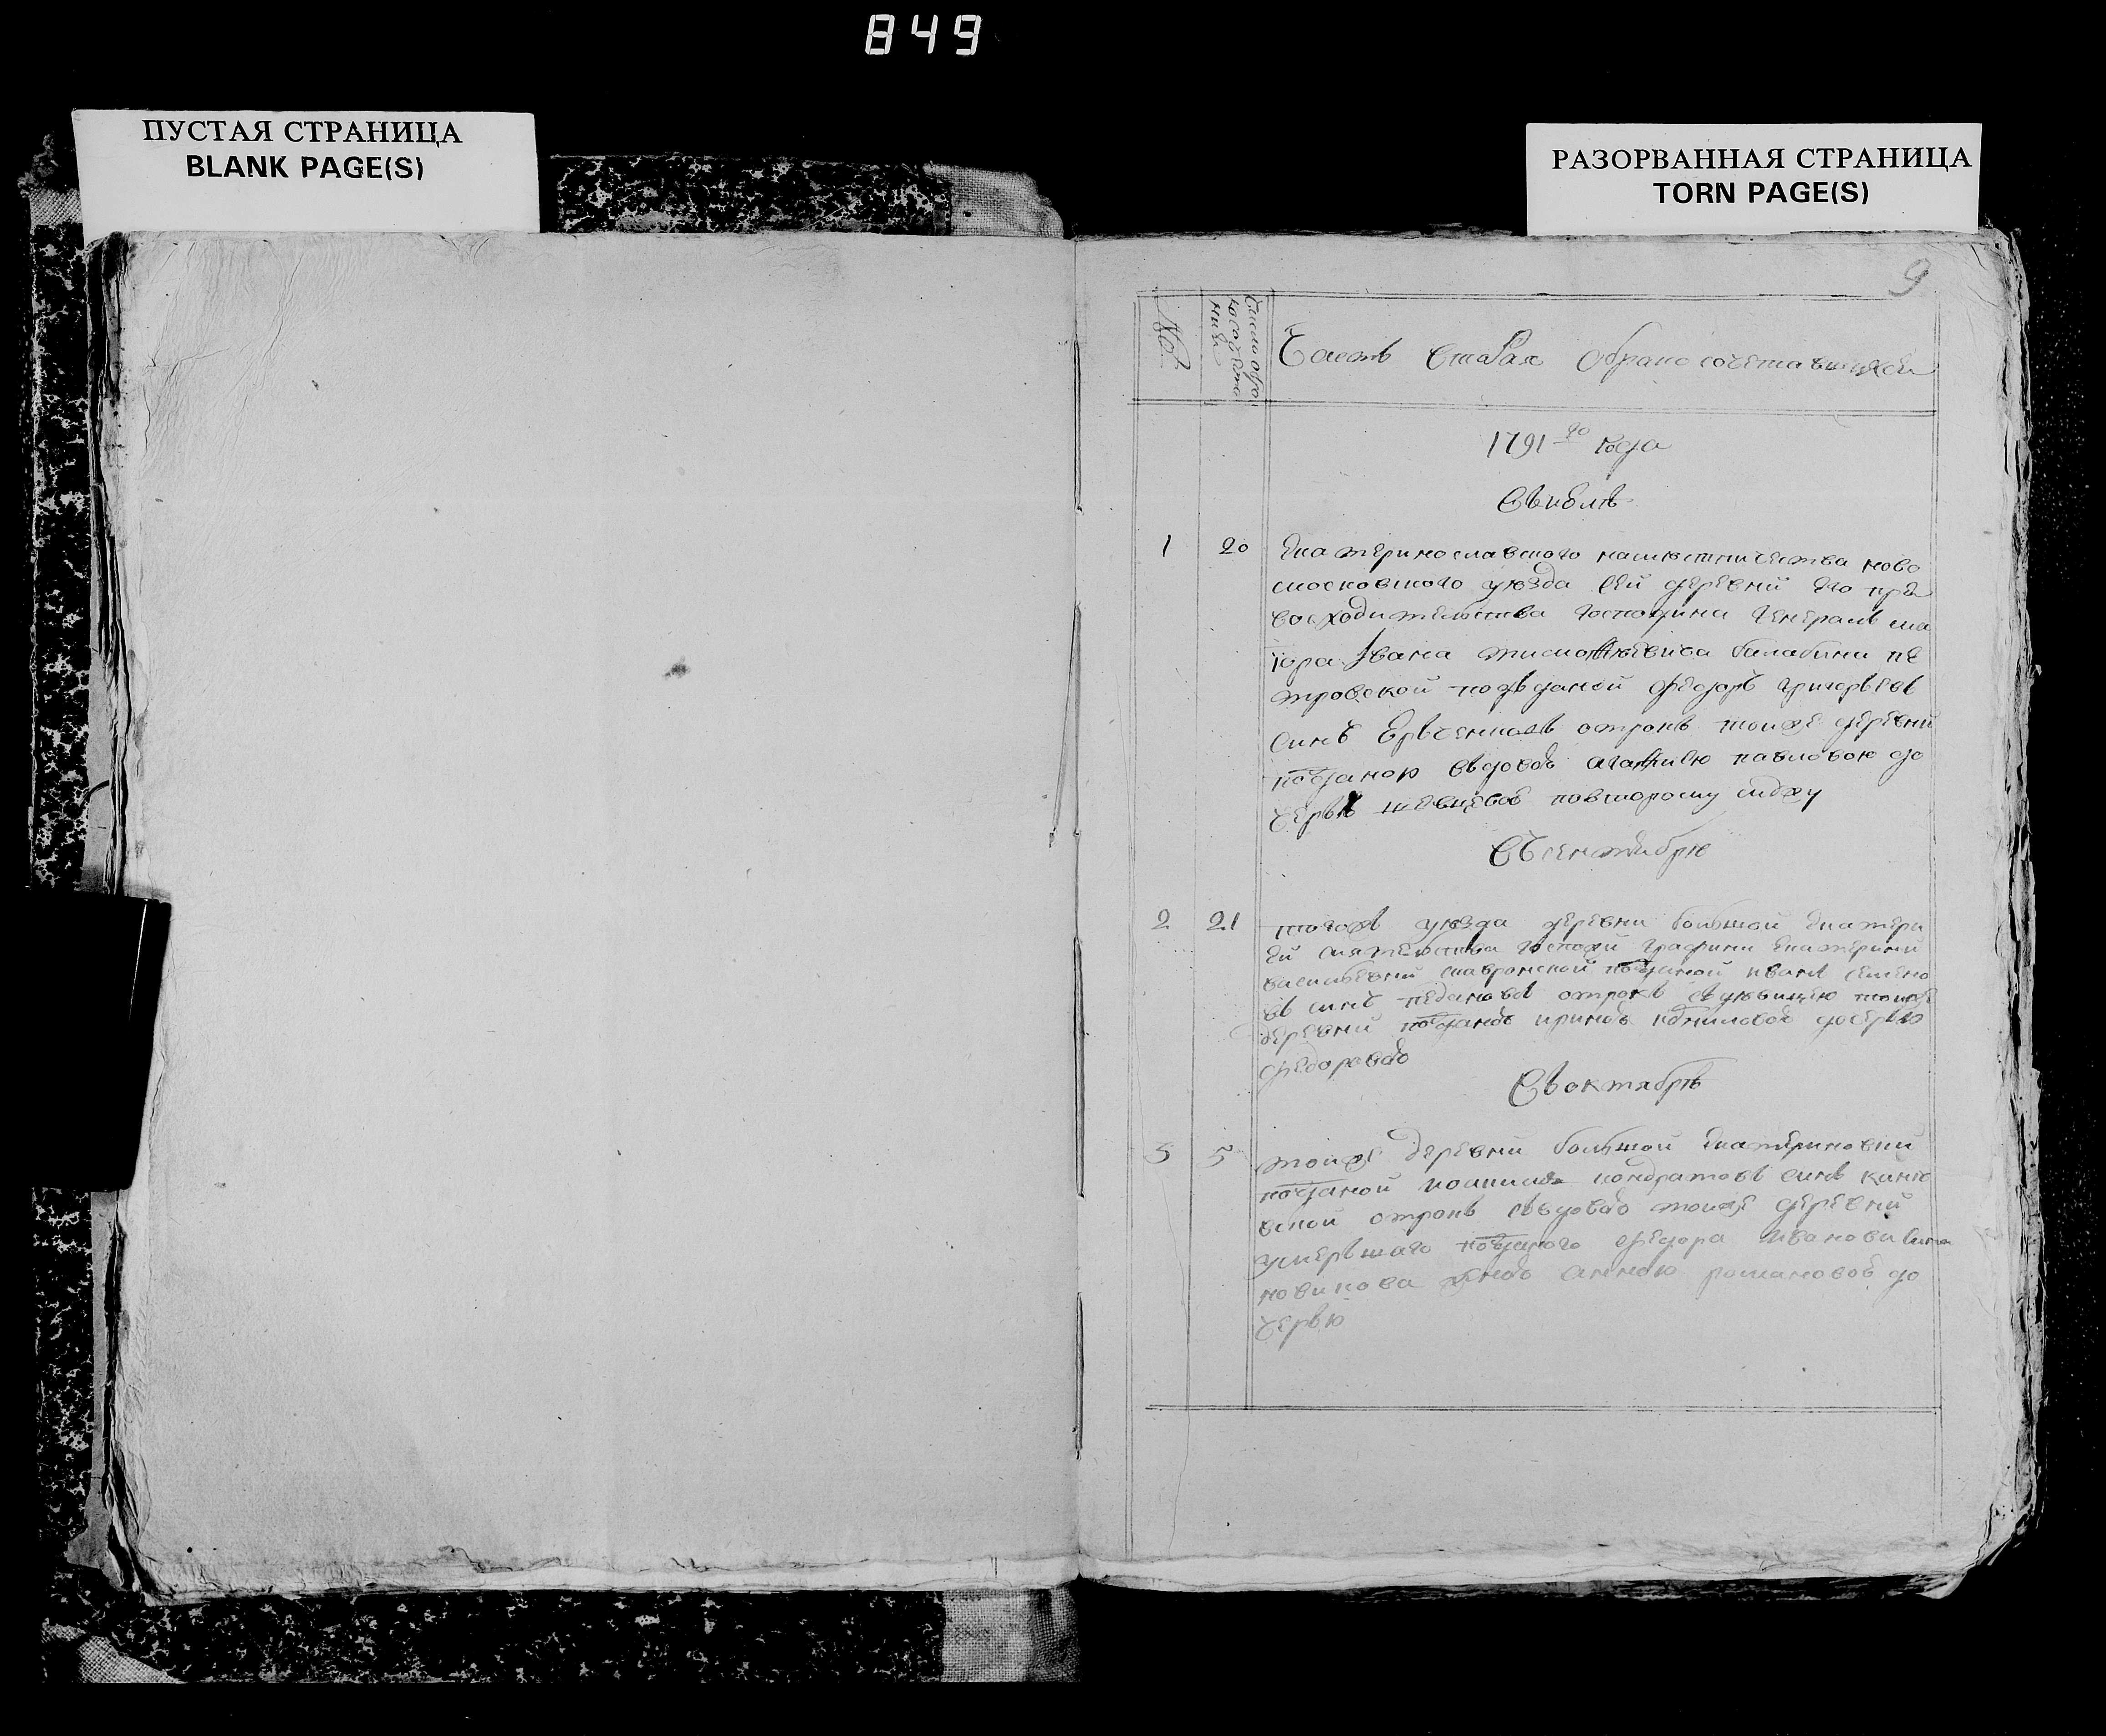 849
ПУСТАЯ СТРАНИЦА
BLANK PAGE(S)
РАЗОРВАННАЯ СТРАНИЦА
TORN PAGE(S)
9
№
число бракосочетаній
Часть вторая обракосочетавшихся
1791 го года
въ июлѣ
1 20 Екатеринославского намѣстничества ново
московского уезда сей деревни его пре
восходителства господина генералъ ма
іора Ивана тимофѣевича балабина пе
тровской подъданой федоръ григорьевъ
синъ отрокъ тоиже деревни
подданою въдовою агафиею павловою до
черью шевцовою повторому браку
въ сентябрѣ
2 21 тогожъ уезда деревни болшой Екатери
ей сиятелства госпожи графини Екатерини
василиевни скавронской подданой иванъ семено
въ синъ отрокъ здѣвицею тоиже
деревни подданою ириною даниловою дочерью
федоровою
въ октябрѣ
3 5 тоиже деревни болшой Екатериновки
подданой кондратовъ синъ канѣ
вской отрокъ въдовою тоиже деревни
умершаго подданого федора иванова сина
новикова женою анною романовою до
черью